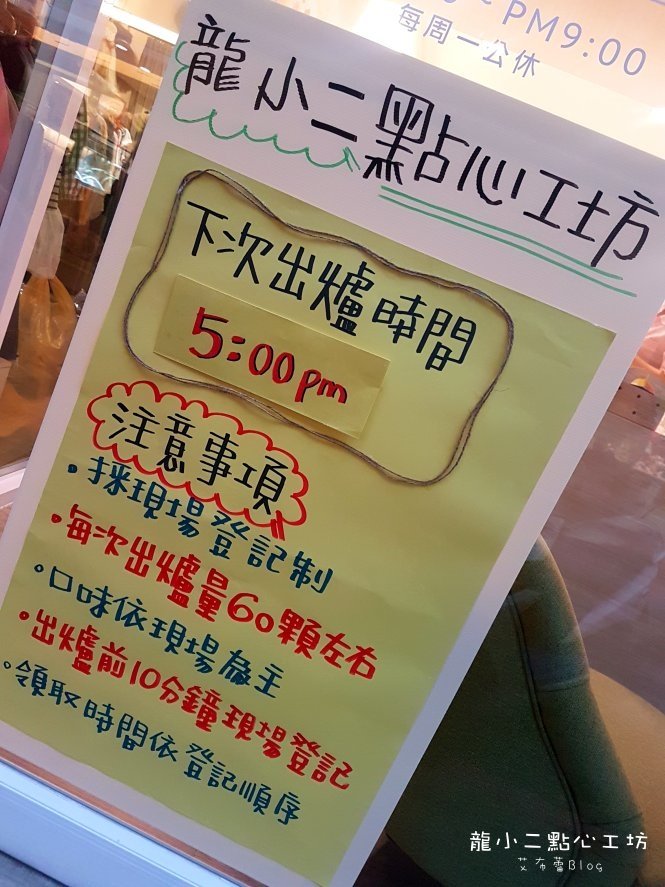 PM9:00
每周一公休
龍小二點心工坊
下次出爐時間
5:00pm
注意事項
•採現場登記制
•每次出爐量60顆左右
•口味依現場為主
•出爐前10分鐘現場登記
•領取時間依登記順序
龍小二點心工坊
艾布蕾Blog